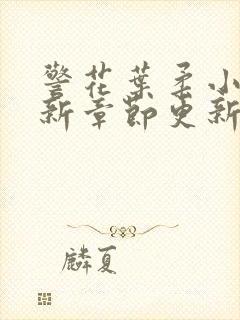 警花葉柔小
新章節更新
麟夏